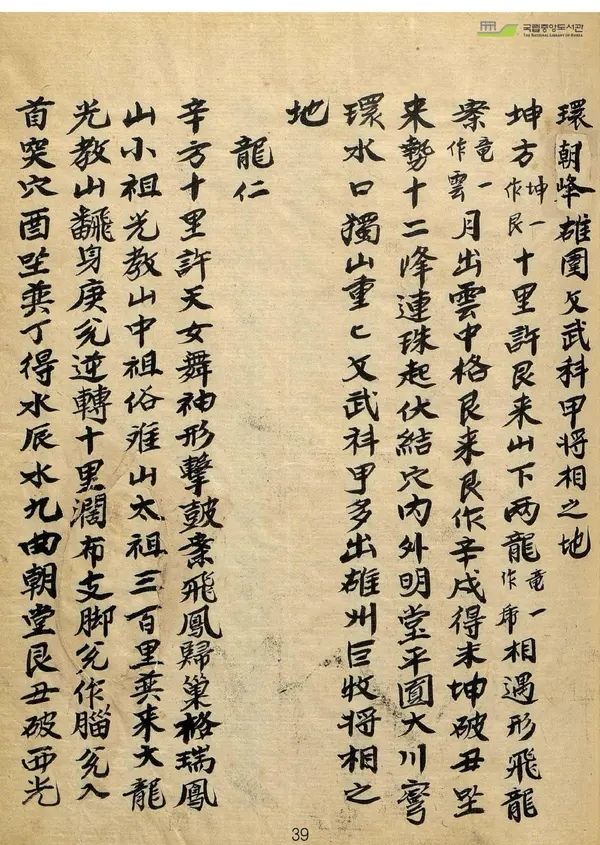 국립중앙도서관
THE NATIONAL LIBRARY OF KOREA
環朝峰雄圍文武科甲将相之地
坤方坤一作艮十里許艮来山下两龍竜一作席相遇形飛龍
案竜一作雲月出雲中格艮来艮作辛戌得未坤破丑坐
来勢十二峰連珠起伏結穴内外明堂平圓大川弯
環水口獨山重〻文武科甲多出雄州巨牧将相之
地
龍仁
辛方十里許天女舞袖形擊鼓案飛鳳歸巢格瑞鳳
山小祖光教山中祖俗離山太祖三百里巽来大龍
光教山飜身庚兌逆轉十里濶布支脚兌作腦兌入
首突穴酉坐巽丁得水辰水九曲朝堂艮丑破西光
39